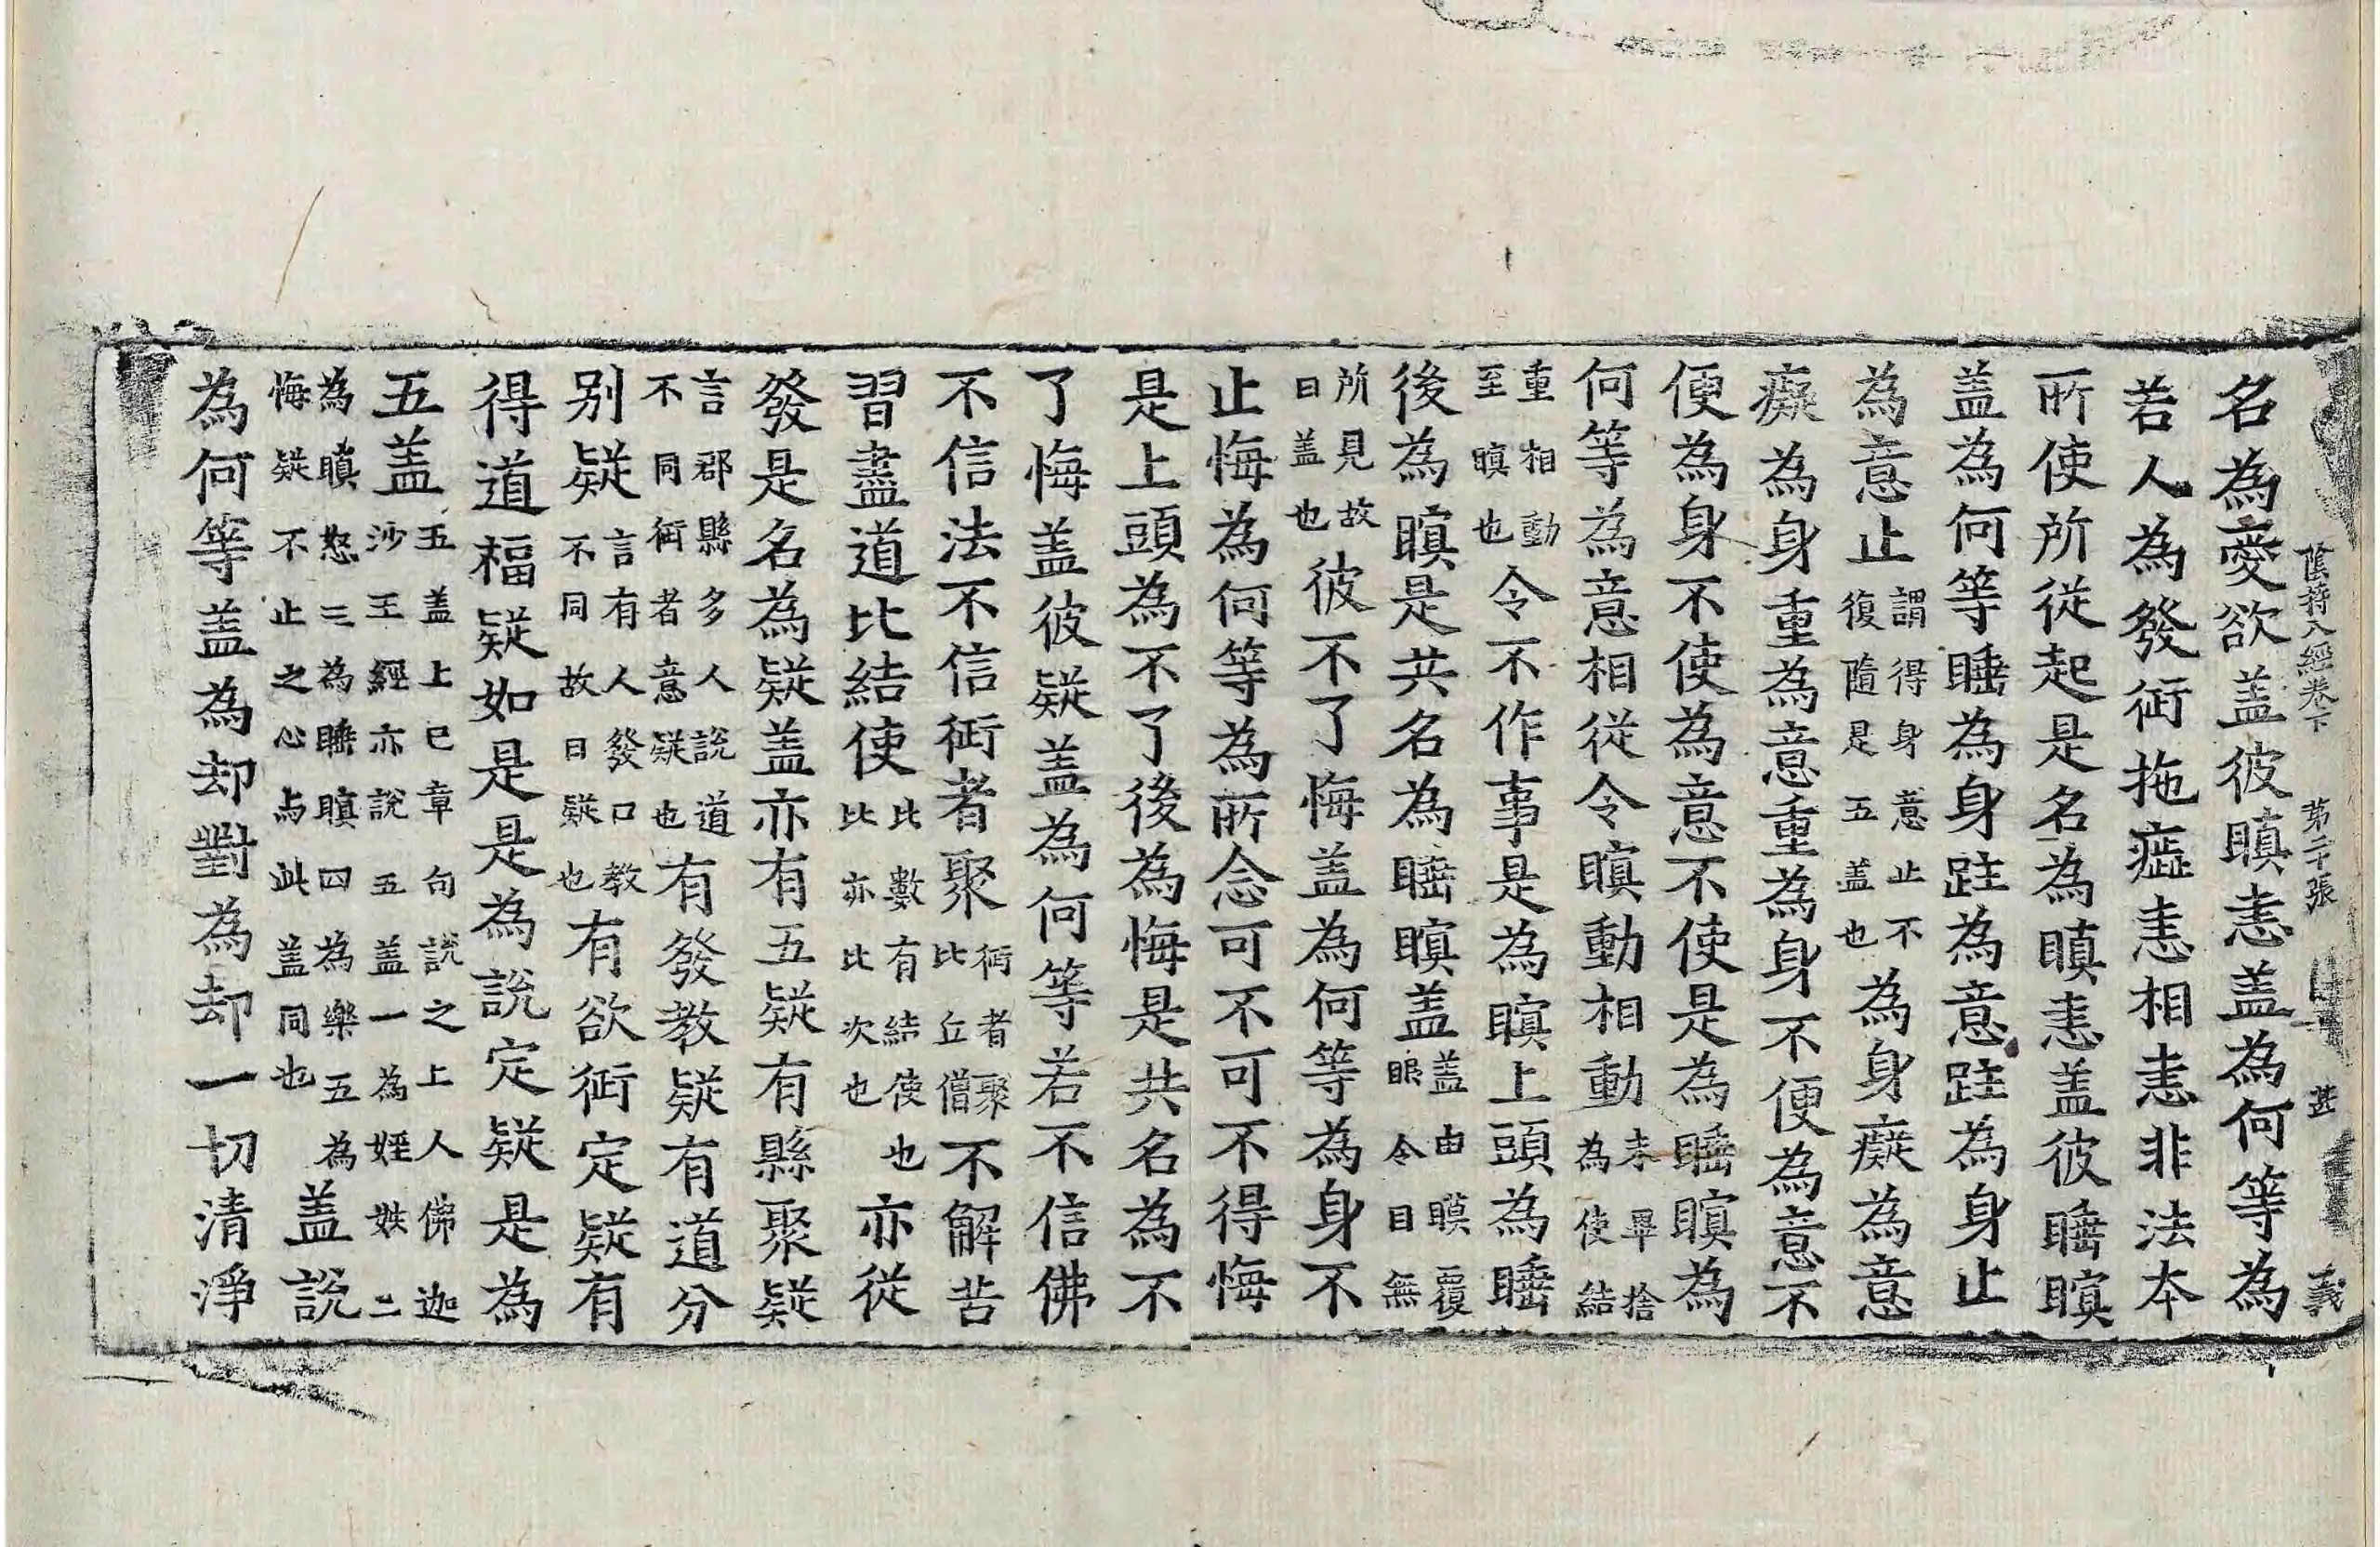 陰持入經卷下 第二十張 甚 義
名為愛欲盖彼瞋恚盖為何等為
若人為發衝拖癋恚相恚非法本
所使所從起是名為瞋恚盖彼睡瞑
盖為何等睡為身跓為意跓為身止
為意止謂得身意止不復隨是五盖也為身癡為意
癡為身重為意重為身不便為意不
便為身不使為意不使是為睡瞑為
何等為意相從令瞑動相動未畢捨為使結
重相動至瞑也令不作事是為瞑上頭為睡
後為瞑是共名為睡瞑盖盖由瞙覆眼令目無
所見故曰盖也彼不了悔盖為何等為身不
止悔為何等為所念可不可不得悔
是上頭為不了後為悔是共名為不
了悔盖彼疑盖為何等若不信佛
不信法不信衙者聚衙者聚比丘僧不解苦
習盡道比結使此數有結使也比亦比次也亦從
發是名為疑盖亦有五疑有縣聚疑
言郡縣多人說道不同衙者意疑也有發教疑有道分
別疑言有人發口教不同故曰疑也有欲衙定疑有
得道福疑如是是為說定疑是為
五盖五盖上已章句說之上人佛迦沙王經亦說五盖一為婬嫉二
為瞋怒三為睡瞑四為樂五為悔疑不止之心与此盖同也盖說
為何等盖為却對為却一切清淨